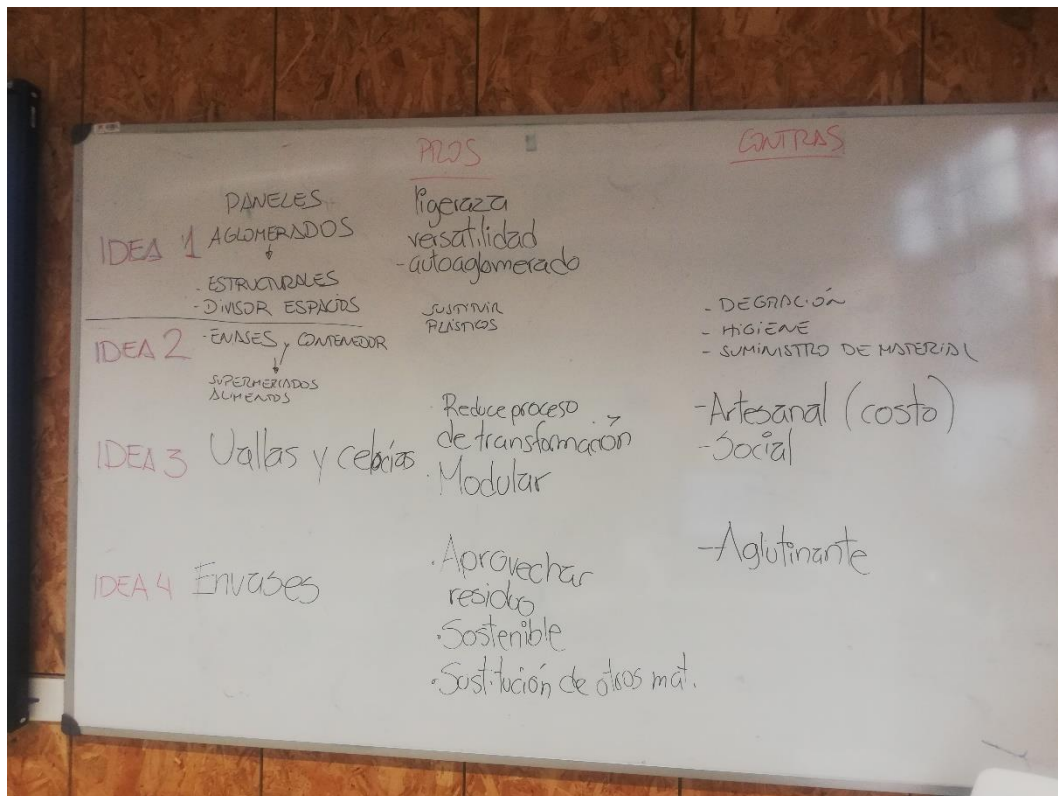 PROS
CONTRAS
IDEA 1
PANELES
AGLOMERADOS
- ESTRUCTURALES
- DIVISOR ESPACIOS
ligeraza
versatilidad
- autoaglomerado
IDEA 2
- ENASES y CONTENEDOR
SUPERMERCADOS
ALIMENTOS
SUSTITUIR
PLÁSTICOS
- DEGRACIÓN
- HIGIENE
- SUMINISTRO DE MATERIAL
IDEA 3
Vallas y celocías
· Reduce proceso
de transformación
· Modular
- Artesanal (costo)
- Social
IDEA 4
Envases
· Aprovechar
residuo
· Sostenible
· Sustitución de otros mat.
- Aglutinante